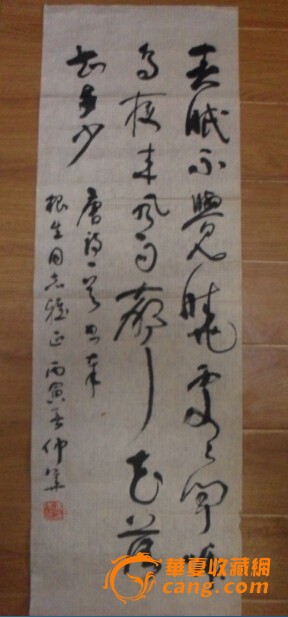 春眠不覺曉處々聞啼
鳥夜来風雨聲花落
知多少
唐詩一首书奉
根生同志雅正 丙寅春仲
華夏收藏網
cang.com